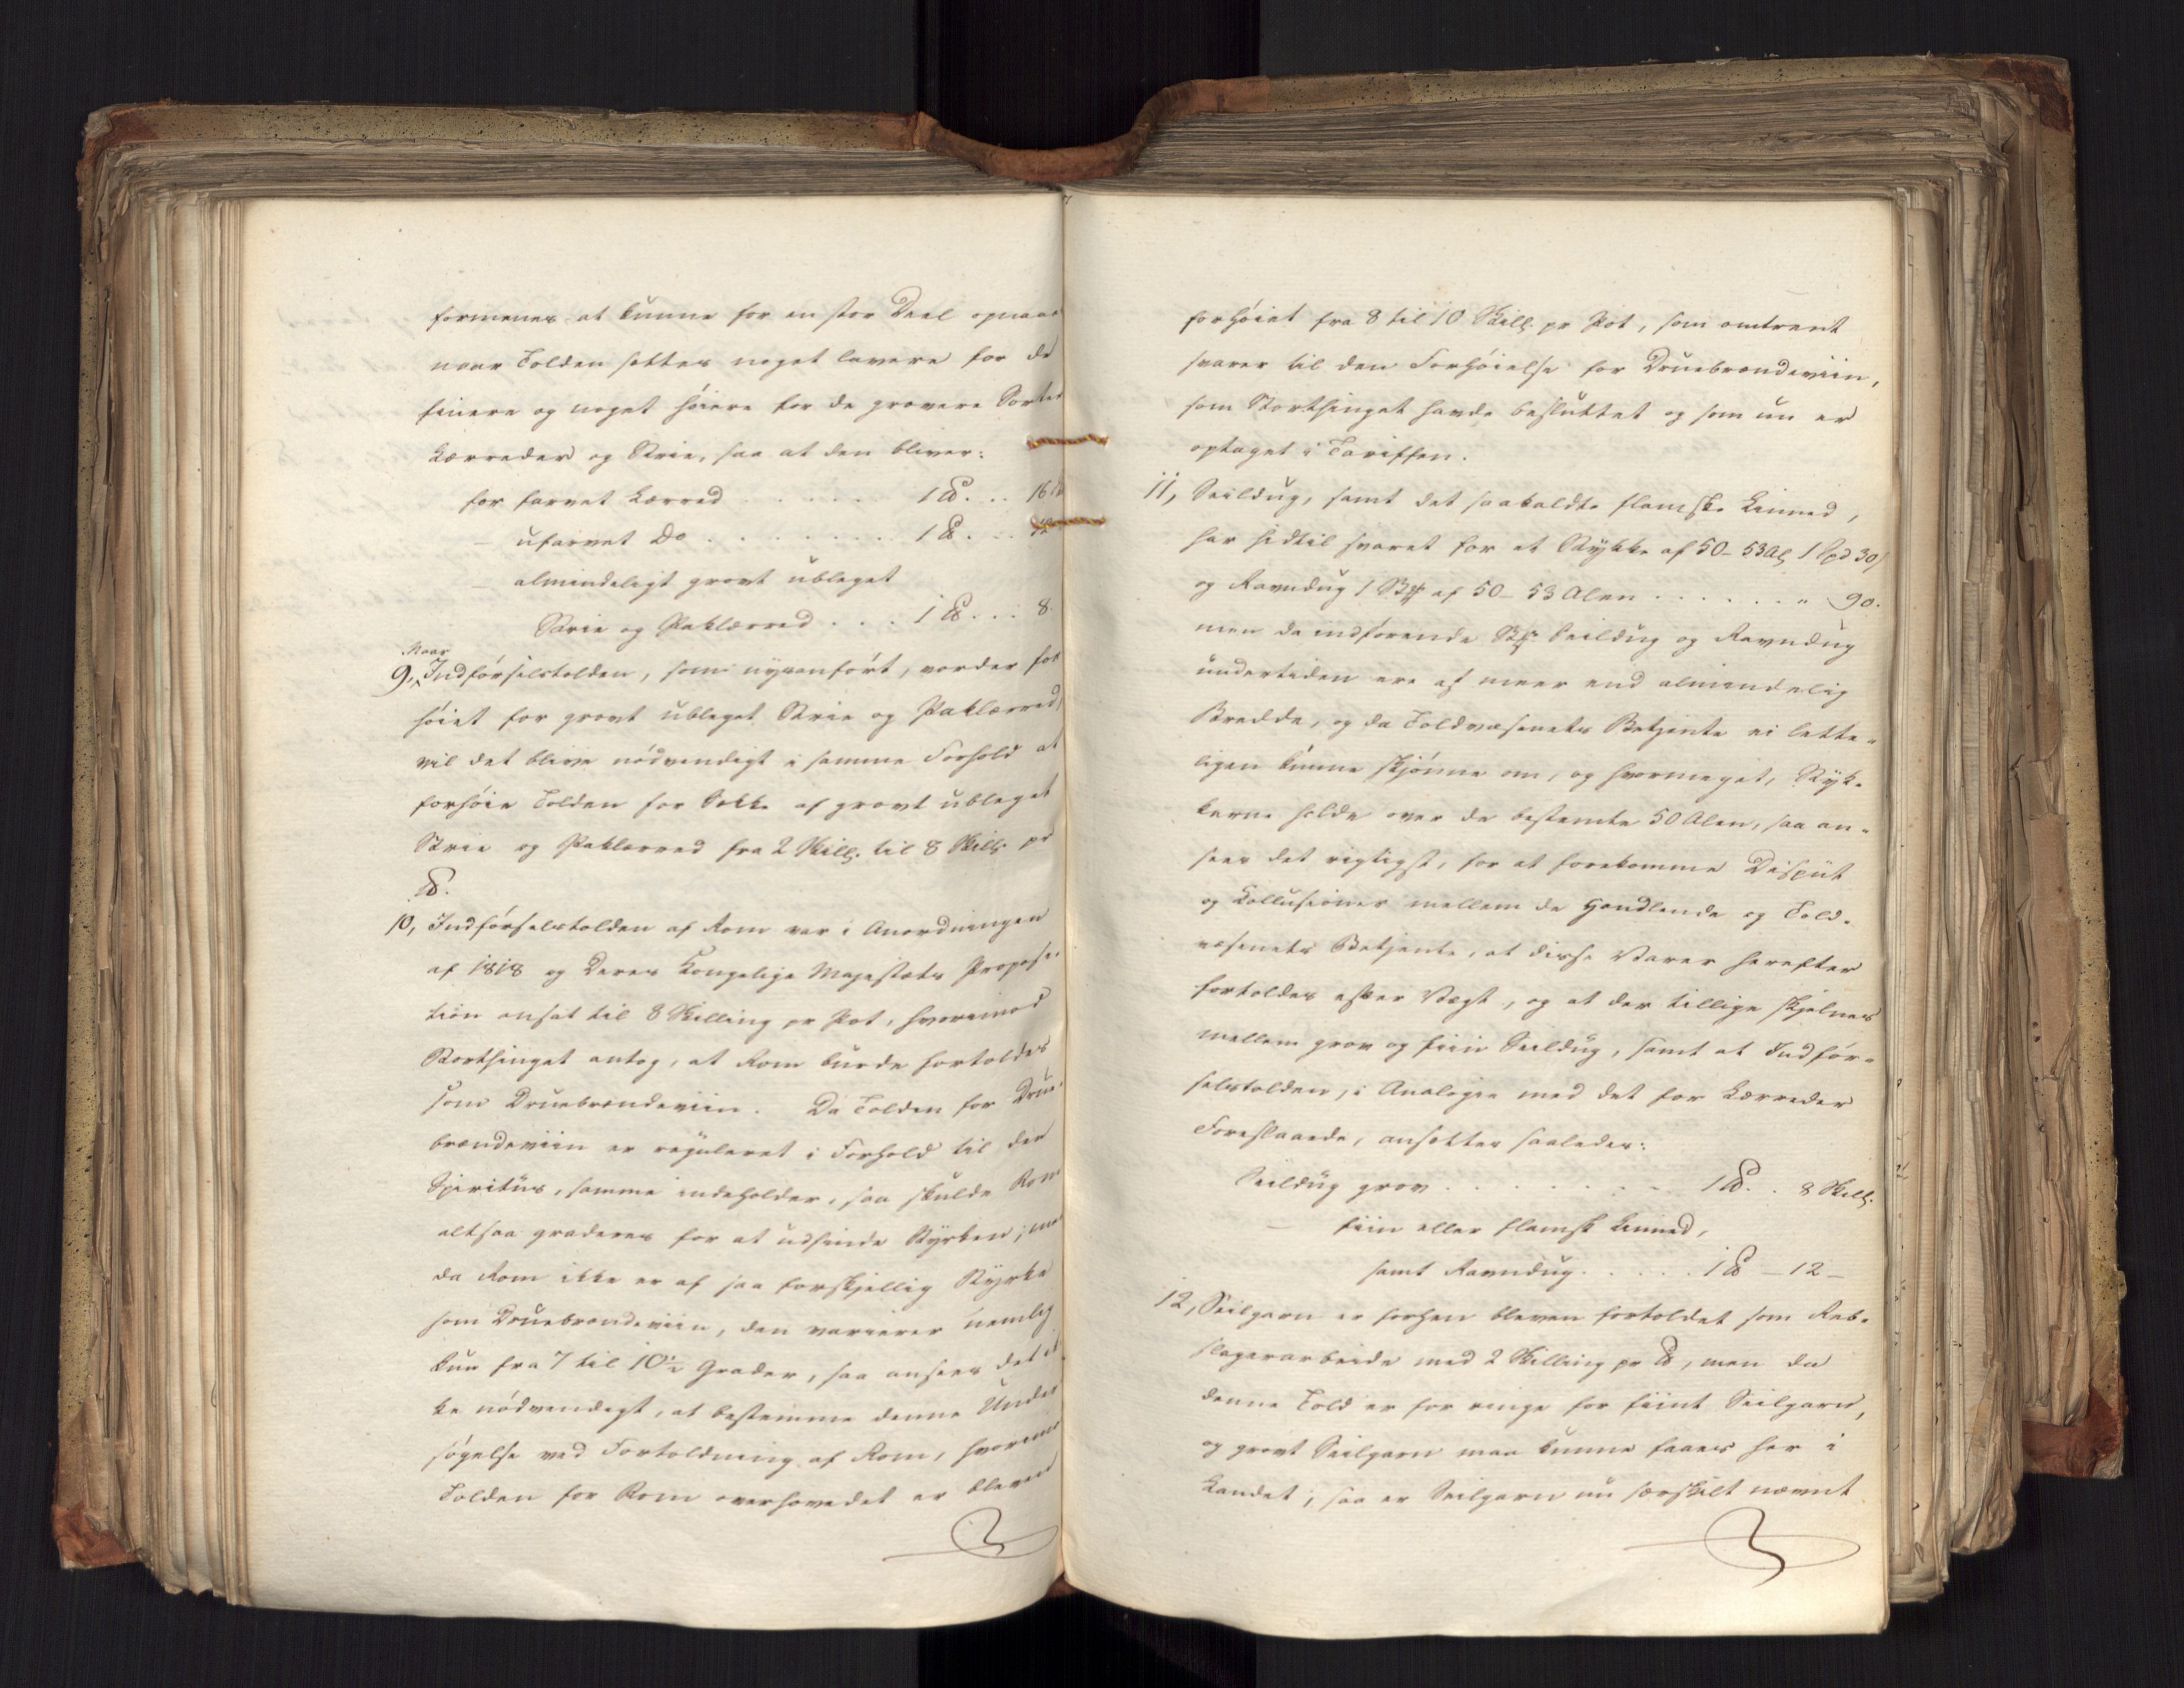 formenes at kunne for en stor Deel opnaaes
naar Tolden settes noget lavere for de
finere og noget høiere for de grovere Sorter
Lærreder og Strie, saa at den bliver:
for farvet Lærred . . . . . 1 ℔. . . 16
— ufarvet Do . . . . . . . . 1 ℔. . .
— almindeligt grovt ubleget
Strie og Paklærred . . . 1 ℔. . . 8.
Naar
9, Indførselstolden, som nysanført, vorder for
høiet for grovt ubleget Strie og Paklærred,
vil det blive nødvendigt i samme Forhold at
forhøie Tolden for Sække af grovt ubleget
Strie og Paklærred fra 2 Skill. til 8 Skill. pr
℔.
10, Indførselstolden af Rom var i Anordningen
af 1818 og Deres Kongelige Majestæts Proposi-
tion ansat til 8 Skilling pr Pot, hvorimod
Storthinget antog, at Rom burde fortoldes
som Druebrændeviin. Da Tolden for Drue-
brændeviin er reguleret i Forhold til den
Spiritus, samme indeholder, saa skulde Rom
altsaa graderes for at udfinde Styrken; men
da Rom ikke er af saa forskjellig Styrke
som Druebrændeviin, den varierer nemlig
kun fra 7 til 10½ Grader, saa ansees det ik
ke nødvendigt, at bestemme denne Under
søgelse ved Fortoldning af Rom, hvorimod
Tolden for Rom overhovedet er bleven
forhøiet fra 8 til 10 Skill. pr Pot, som omtrent
svarer til den Forhøielse for Druebrændeviin,
som Storthinget havde besluttet og som nu er
optaget i Tariffen.
11, Seildug, samt det saakaldte flamske Linned,
har hidtil svaret for et Stykke af 50-53 Al. 1 Spd 30
og Ravndug 1 St. af 50-53 Alen . . . . . . " 90.
men da indførende St. Seildug og Ravndug
undertiden ere af meer end almindelig
Bredde, og da Toldvæsenets Betjente ei lette-
ligen kunne skjønne om, og hvormeget, Styk-
kerne holde over de bestemte 50 Alen, saa an-
sees det rigtigst, for at forekomme Disput
og Collusioner mellem de Handlende og Told-
væsenets Betjente, at disse Varer herefter
fortoldes efter Vægt, og at der tillige skjelnes
mellem grov og fiin Seildug, samt at Indfør-
selstolden, i Analogie med det for Lærreder
Foreslaaede, ansættes saaledes:
Seildug grov . . . . . . . . 1 ℔. . 8 Skill.
— fiin eller flamsk Linned,
samt Ravndug . . . . . 1 ℔ — 12 —
12, Seilgarn er forhen bleven fortoldet som Reb-
slagerarbeide med 2 Skilling pr ℔, men da
denne Told er for ringe for fiint Seilgarn,
og grovt Seilgarn maa kunne faaes her i
Landet, saa er Seilgarn nu særskilt nævnt